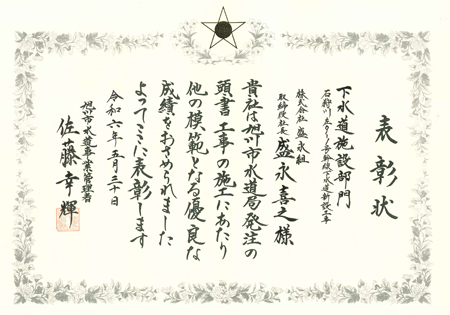 表彰状
下水道施設部門
石狩川左の一号幹線下水道新設工事
株式会社 盛永組
取締役社長 盛永喜之様
貴社は旭川市水道局発注の
頭書工事の施工にあたり
他の模範となる優良な
成績をおさめられました
よってここに表彰します
令和六年五月三十日
旭川市水道事業管理者
佐藤幸輝